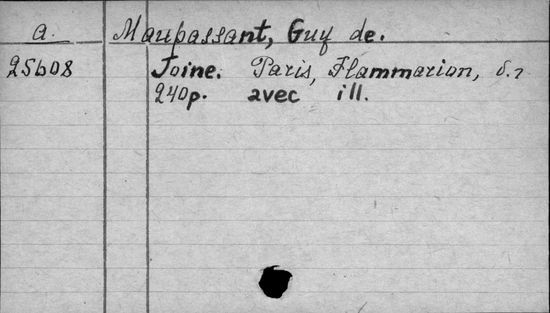 a. Maupassant, Guy de.
25608 Toine. Paris, Flammarion, s.
240p. avec ill.